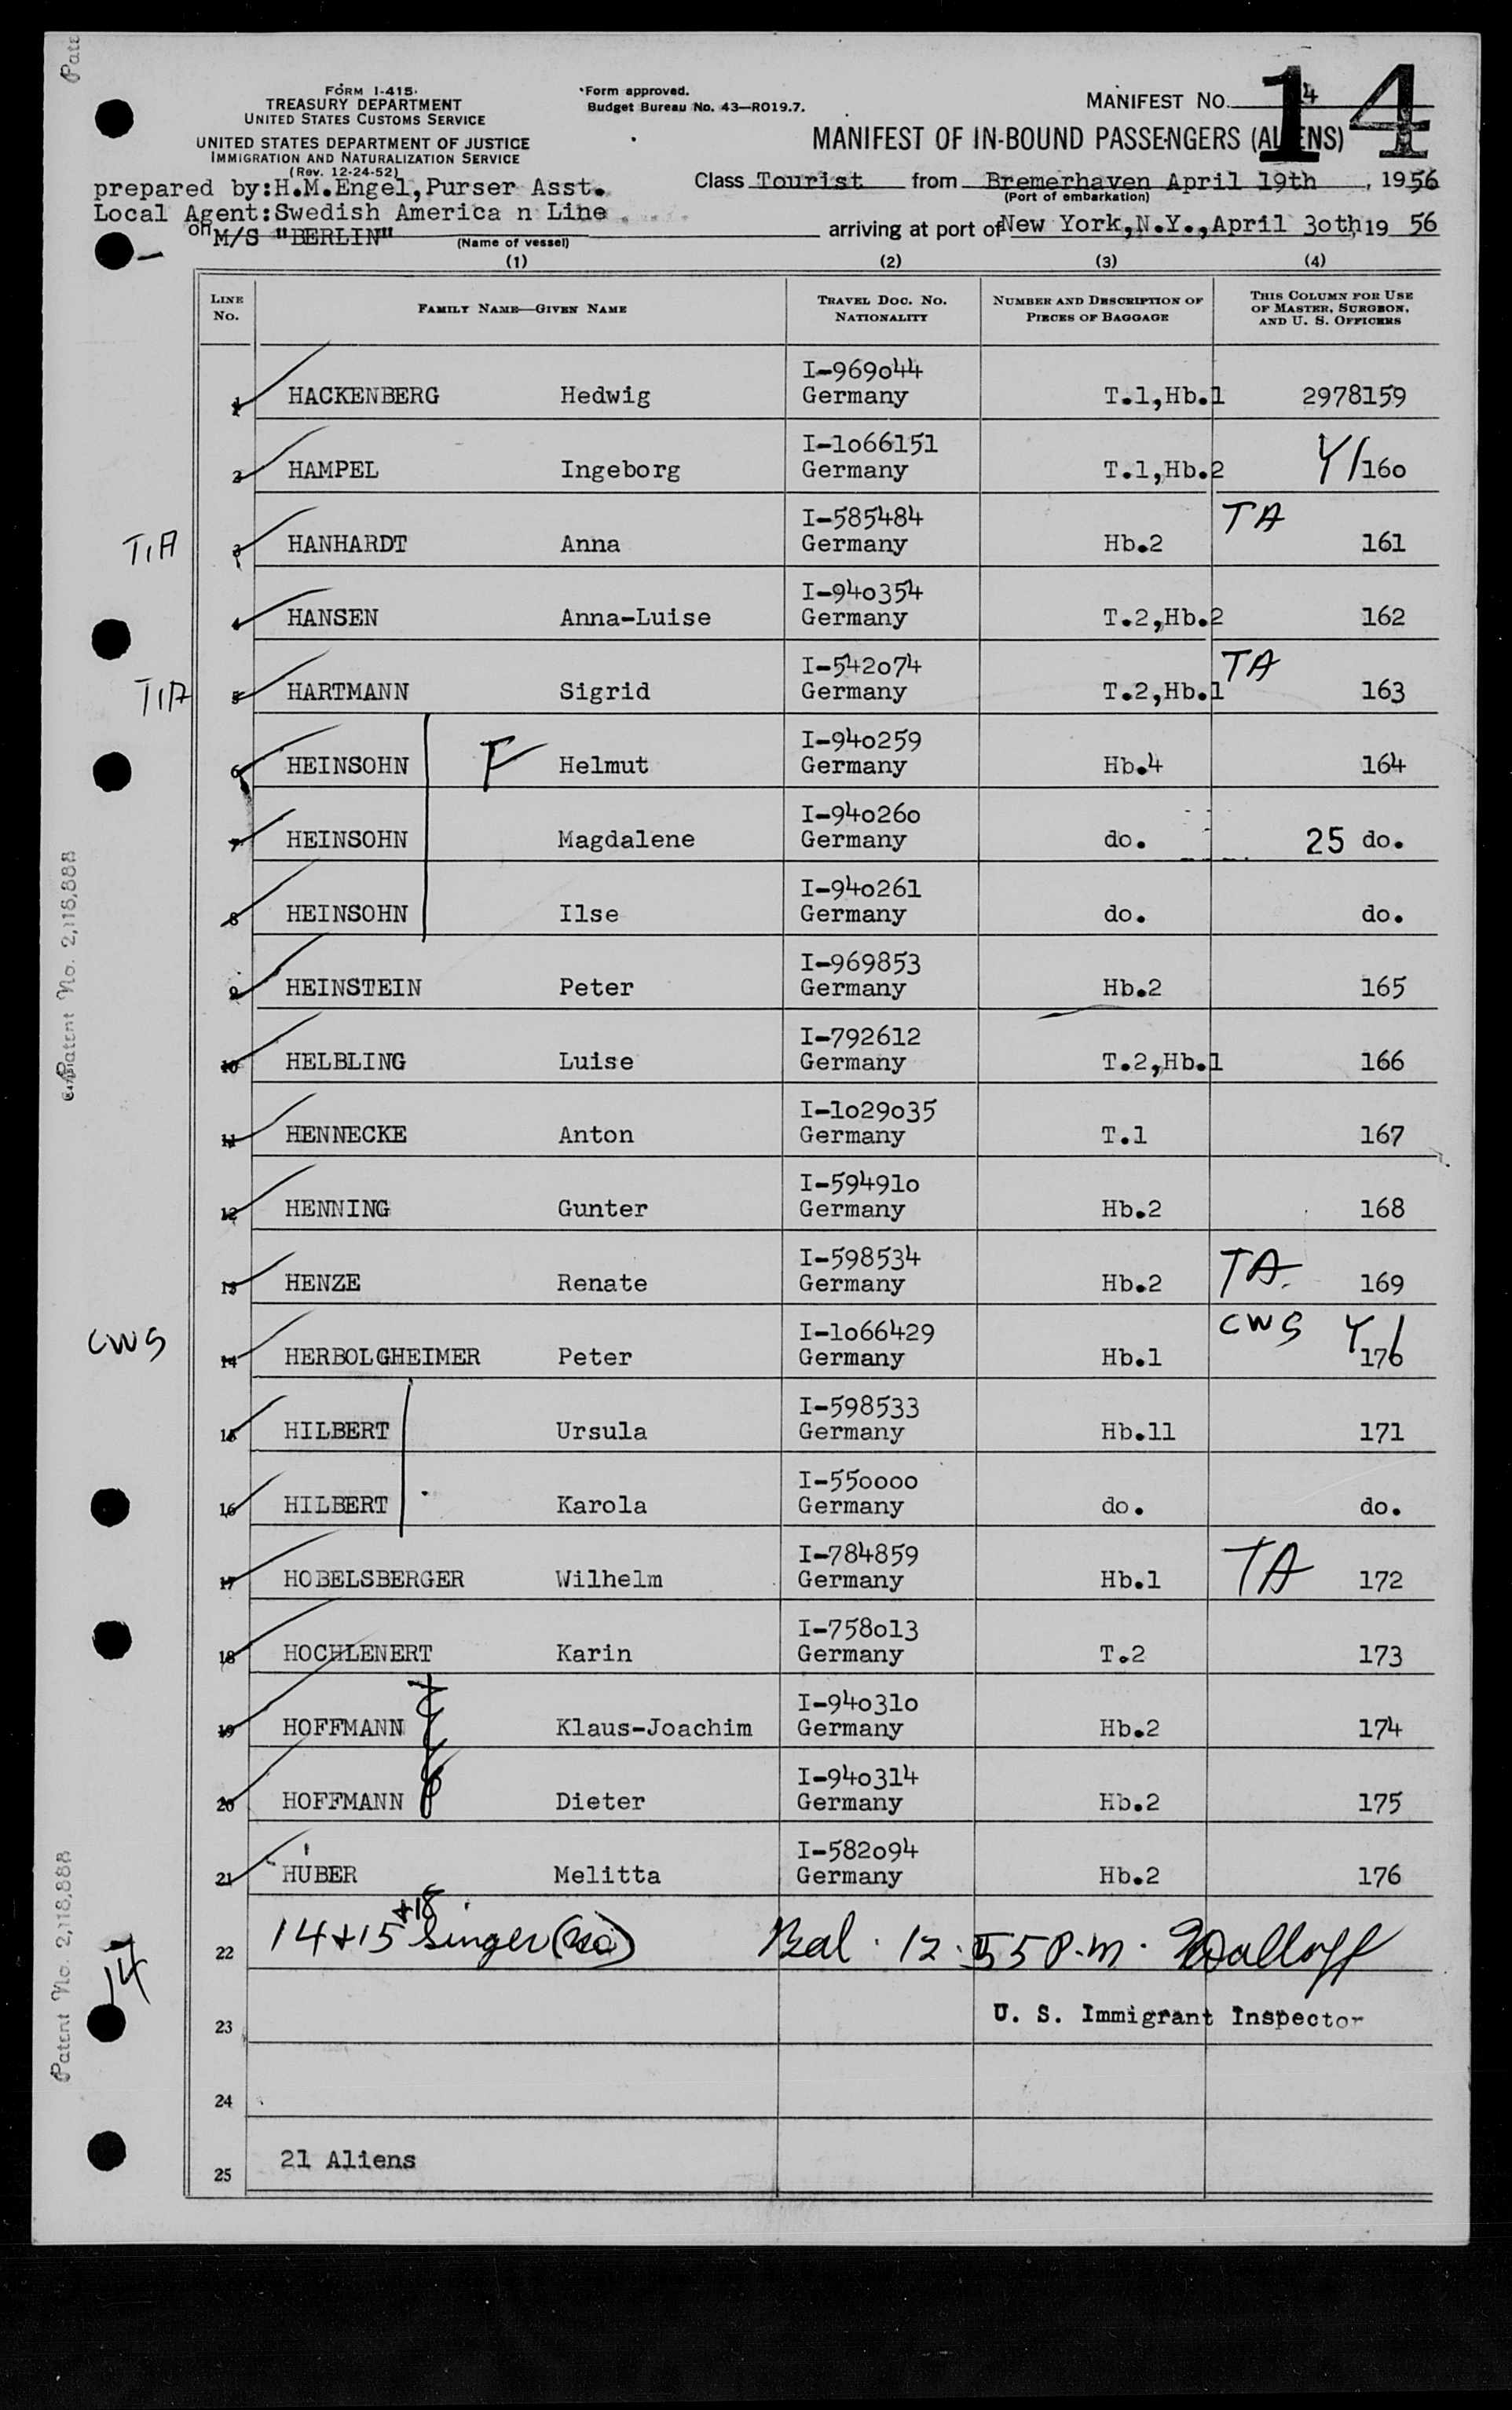 FORM I-415
TREASURY DEPARTMENT
UNITED STATES CUSTOMS SERVICE
UNITED STATES DEPARTMENT OF JUSTICE
IMMIGRATION AND NATURALIZATION SERVICE
(Rev. 12-24-52)
Form approved.
Budget Bureau No. 43—RO19.7.
MANIFEST NO. 14
14
MANIFEST OF IN-BOUND PASSENGERS (ALIENS)
prepared by:H.M.Engel,Purser Asst.
Class Tourist from Bremerhaven April 19th, 1956
(Port of embarkation)
Local Agent:Swedish America n Line
on M/S "BERLIN"
(Name of vessel)
arriving at port of New York,N.Y.,April 3oth, 19 56
(1) (2) (3) (4)
LINE NO. FAMILY NAME—GIVEN NAME TRAVEL DOC. NO. NATIONALITY NUMBER AND DESCRIPTION OF PIECES OF BAGGAGE THIS COLUMN FOR USE OF MASTER, SURGEON, AND U. S. OFFICERS
I-969o44
1 HACKENBERG Hedwig Germany T.1,Hb.1 2978159
I-1o66151
2 HAMPEL Ingeborg Germany T.1,Hb.2 Y/ 16o
I-585484 TA
T1A 3 HANHARDT Anna Germany Hb.2 161
I-94o354
4 HANSEN Anna-Luise Germany T.2,Hb.2 162
I-542o74 TA
T1A 5 HARTMANN Sigrid Germany T.2,Hb.1 163
I-94o259
6 HEINSOHN F Helmut Germany Hb.4 164
I-94o26o
7 HEINSOHN Magdalene Germany do. 25 do.
I-94o261
8 HEINSOHN Ilse Germany do. do.
I-969853
9 HEINSTEIN Peter Germany Hb.2 165
I-792612
10 HELBLING Luise Germany T.2,Hb.1 166
I-1o29o35
11 HENNECKE Anton Germany T.1 167
I-59491o
12 HENNING Gunter Germany Hb.2 168
I-598534
13 HENZE Renate Germany Hb.2 TA. 169
I-1o66429 CWS Y/
CWS 14 HERBOLGHEIMER Peter Germany Hb.1 17o
I-598533
15 HILBERT Ursula Germany Hb.11 171
I-55oooo
16 HILBERT Karola Germany do. do.
I-784859
17 HOBELSBERGER Wilhelm Germany Hb.1 TA 172
I-758o13
18 HOCHLENERT Karin Germany T.2 173
I-94o31o
19 HOFFMANN Klaus-Joachim Germany Hb.2 174
I-94o314
20 HOFFMANN Dieter Germany Hb.2 175
I-582o94
21 HUBER Melitta Germany Hb.2 176
22 14+15+18 Singer Bal. 12.55 P.m.
23 U. S. Immigrant Inspector
24
25 21 Aliens
14
Patent No. 2,118,888
Patent No. 2,118,888